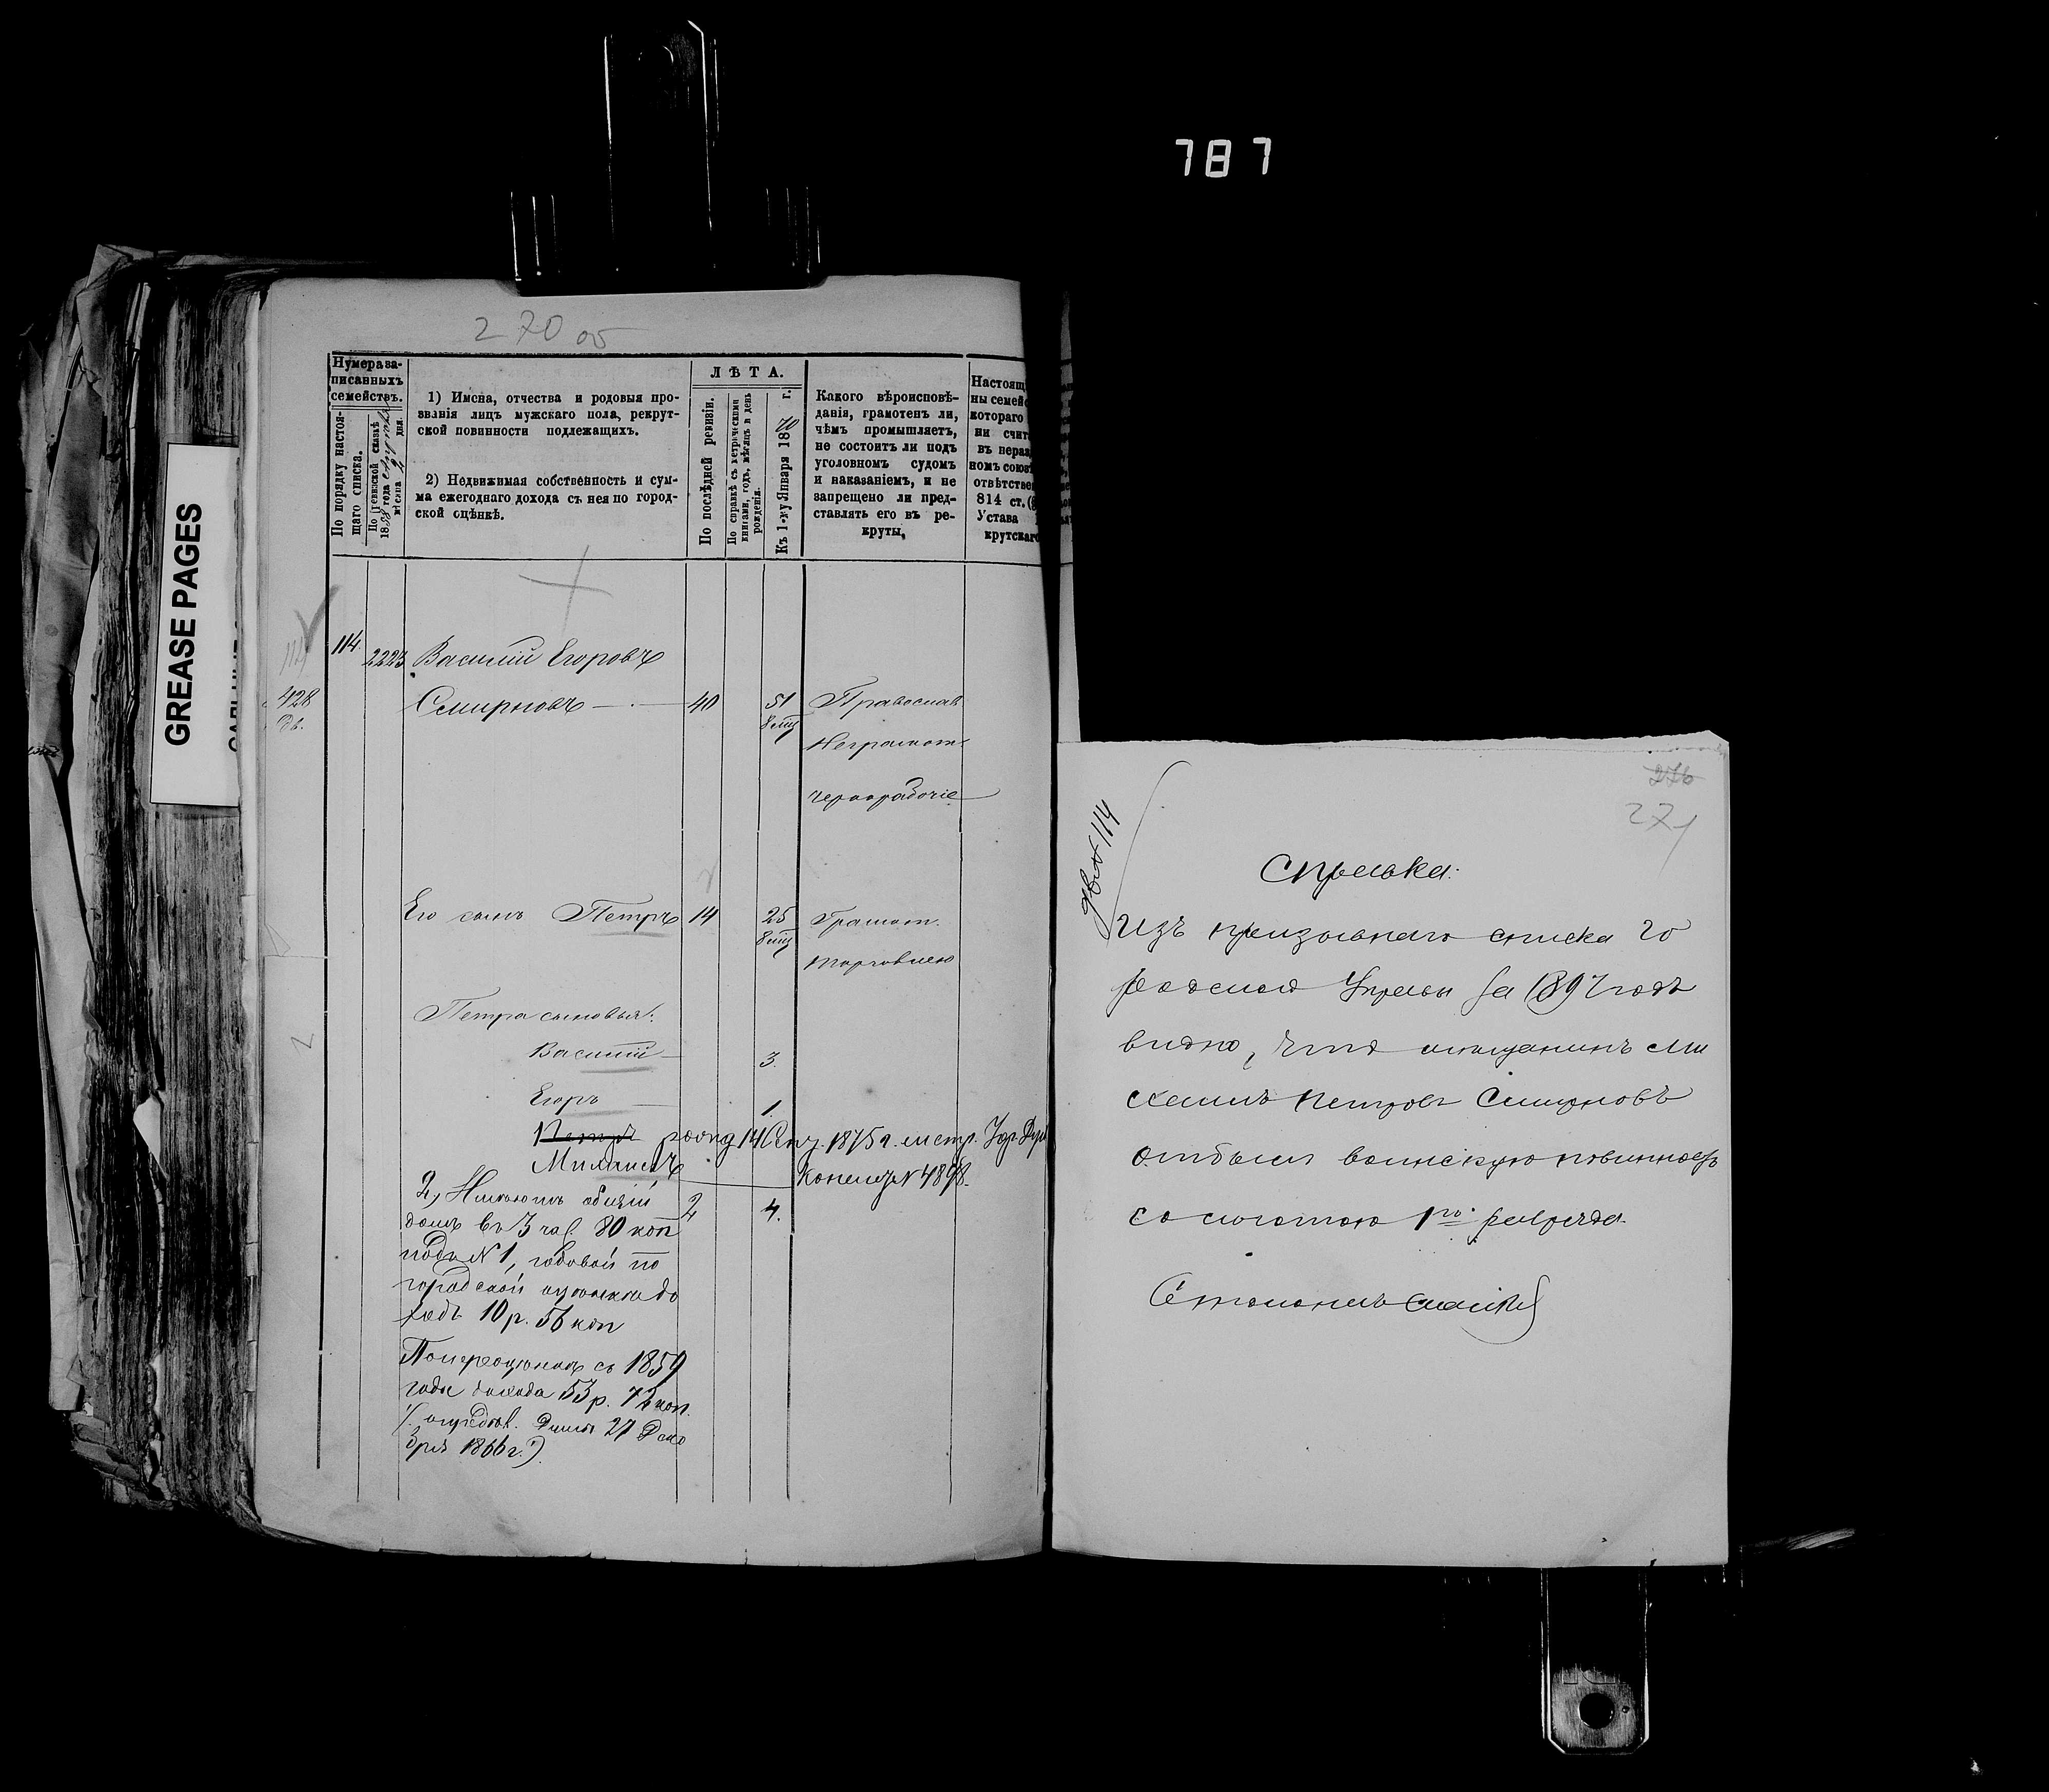 787
GREASE PAGES
270 об
Нумера за-
писанныхъ
семействъ.
По порядку настоя-
щаго списка.
По ревизской сказкѣ
1858 года
мѣсяца дня.
1) Имена, отчества и родовыя про-
званія лицъ мужскаго пола, рекрут-
ской повинности подлежащихъ.
2) Недвижимая собственность и сум-
ма ежегоднаго дохода съ нея по город-
ской оцѣнкѣ.
ЛѢТА.
По послѣдней ревизіи.
По справкѣ съ метрическими
книгами, годъ, мѣсяцъ и день
рожденія.
Къ 1-му Января 1870 г.
Какого вѣроисповѣ-
данія, грамотенъ ли,
чѣмъ промышляетъ,
не состоитъ ли подъ
уголовномъ судомъ
и наказаніемъ, и не
запрещено ли пред-
ставлять его въ ре-
круты,
Настоящ
ны семей
котораго
ни счит
въ нераз
номъ союз
отвѣтстве
814 ст.
Устава
крутскаго
114. 2223 Василій Егоровъ
428 Смирновъ 40 51 Православ
дв. 8 мц
Неграмот.
чернорабочіе
Его сынъ Петръ 14 25 Грамот.
8 мц
торговлею
Петра сыновья:
Василій 3.
Егоръ 1.
Петръ рожд 14 1875 г.
Михаилъ № 4898.
2) Имѣютъ общій 2 4.
домъ въ 3 час. 80 коп
подъ № 1, годовой по
городской оцѣнкѣ до
ходъ 10 р. 56 коп
По переоцѣнкѣ съ 1859
года дохода 53 р. 72 коп.
Думы 27 Дека
бря 1866 г.)
276
271
дв № 114
Справка.
Изъ призывнаго списка Го
родской Управы за 1897 годъ
видно, что мѣщанинъ Ми
хаилъ Петровъ Смирновъ
отбылъ воинскую повинность
со льготою 1го разряда.